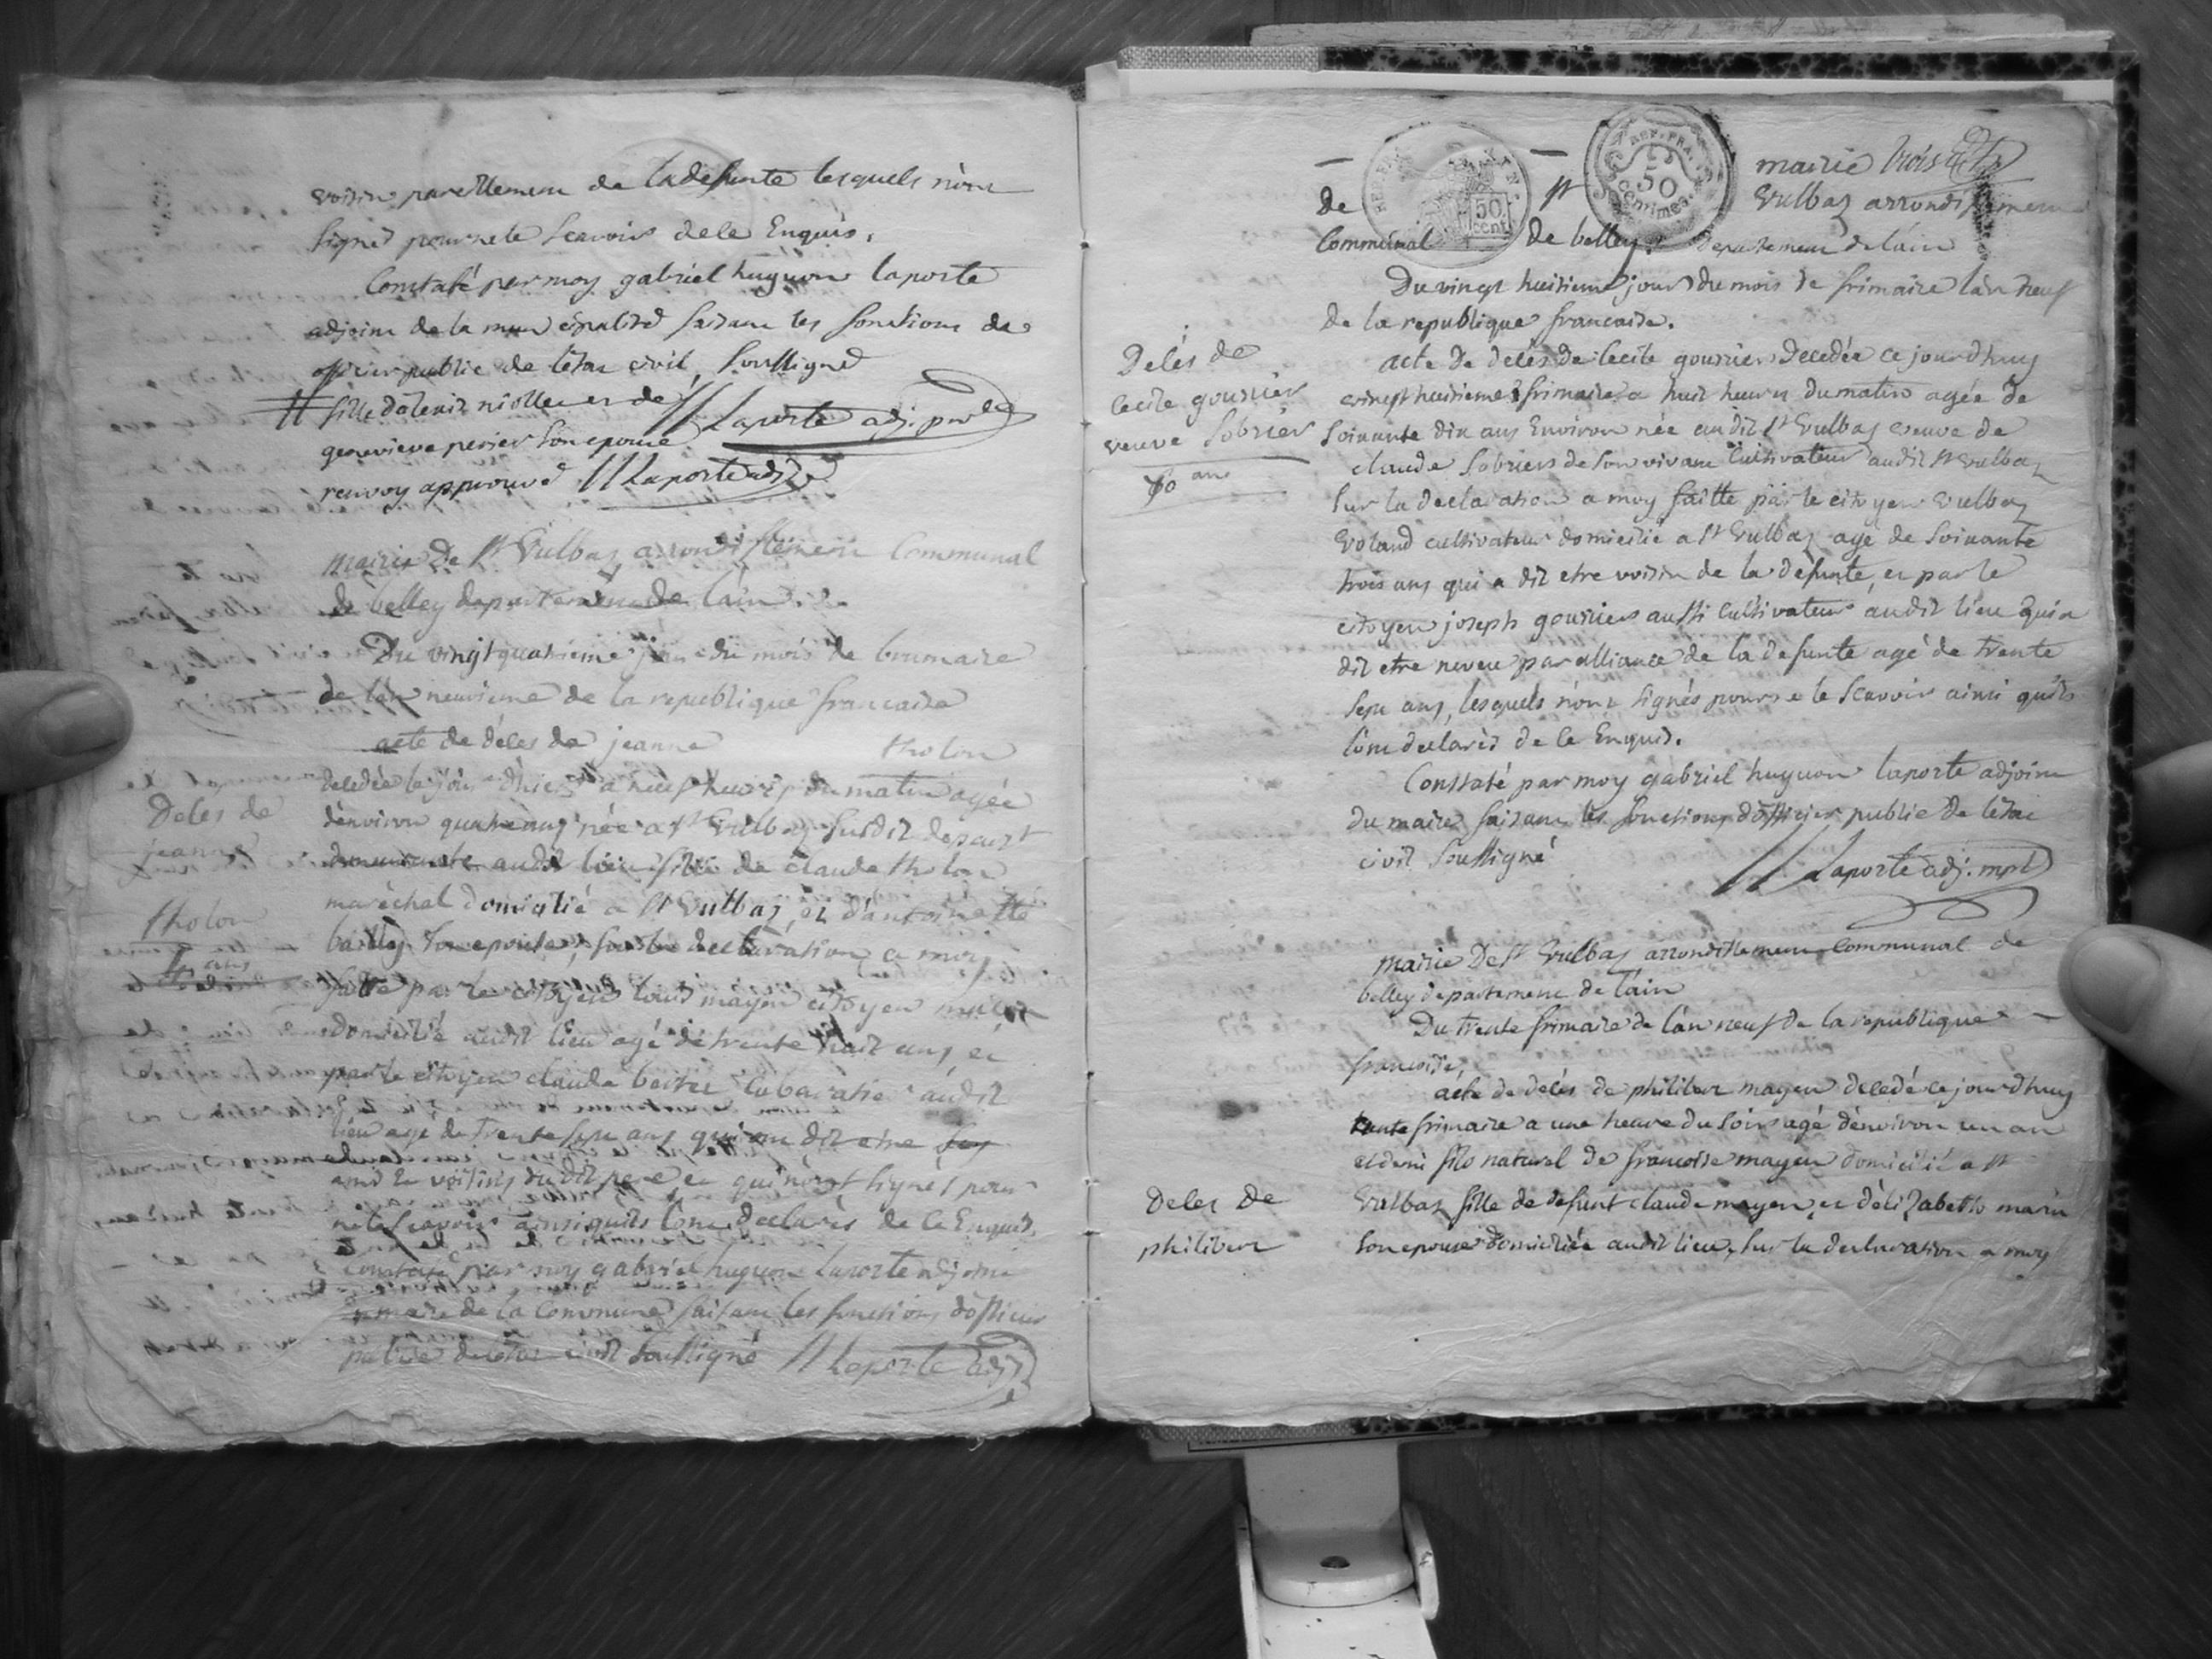 voisin pareillement de la defunte lesquels n'ont
signé pour ne le scavoir de ce Enquis,
Constaté par moy gabriel huguon laporte
adjoint de la municipalité faisant les fonctions de
officier public de l'etat civil soussigné
# fille d'alexis niollet et de // Laporte adj. prv
genevieve perier son epouse
renvoy approuvé // Laporte adj
mairie de St Vulbaz arrondissement Communal
de belley departement de l'ain.
Du vingt quatrieme jour du mois de brumaire
de l'an neuvieme de la republique francaise
acte de déces de jeanne tholon
decedée le jour d'hier a neuf heures du matin agée
d'environ quatre ans née a St Vulbaz susdit departt
demeurante audit lieu fille de claude tholon
maréchal domicilié a St Vulbaz, et d'antoinette
bailly son epouse, sur la declaration a moy
faitte par le citoyen louis mayen citoyen
domicilié audit lieu agé de trente huit ans, et
par le citoyen claude cabaratier audit
lieu agé de trente sept ans qui ont dit etre
amis et voisins dudit pere et qui n'ont signés pour
ne le scavoir ainsi quils l'ont declarés de ce Enquis.
Constaté par moy gabriel huguon laporte adjoint
du maire de la Commune faisant les fonctions d'officier
public de l'etat civil soussigné // Laporte adj
Deces de
jeanne
tholon
4 ans
REP. FRA.
50
cent
REP. FRA.
50
Centimes.
mairie trois
de St Vulbaz arrondissement
Communal de belley departement de l'ain
Du vingt huitieme jour du mois de frimaire l'an neuf
de la republique francaise.
acte de deces de Cecile gourrier decedée ce jourdhuy
vingt huitieme frimaire a huit heures du matin agée de
soixante dix ans Environ née audit St Vulbaz veuve de
claude sobrier de son vivant Cultivateur audit St Vulbaz
sur la declaration a moy faitte par le citoyen Vulbaz
Voland cultivateur domicilié a St Vulbaz agé de soixante
trois ans qui a dit etre voisin de la defunte, et par le
citoyen joseph gourrier aussi Cultivateur audit lieu qui a
dit etre neveu par alliance de la defunte agé de trente
sept ans, lesquels n'ont signés pour ne le scavoir ainsi quils
l'ont declarés de ce Enquis.
Constaté par moy gabriel huguon laporte adjoint
du maire faisant les fonctions d'officier public de l'etat
civil soussigné
// Laporte adj. mpl
Deces de
Cecile gourrier
veuve Sobrier
70 ans
mairie De St Vulbaz arrondissement Communal de
belley departement de l'ain
Du trente frimaire de l'an neuf de la republique
francoise,
acte de deces de philibert mayen decedé ce jourdhuy
trente frimaire a une heure du soir agé d'environ un an
et demi fils naturel de francoise mayen domicilié a St
Vulbaz fille de defunt claude mayen et d'elizabeth marin
son epouse domiciliée audit lieu, sur la declaration a moy
Deces de
philibert